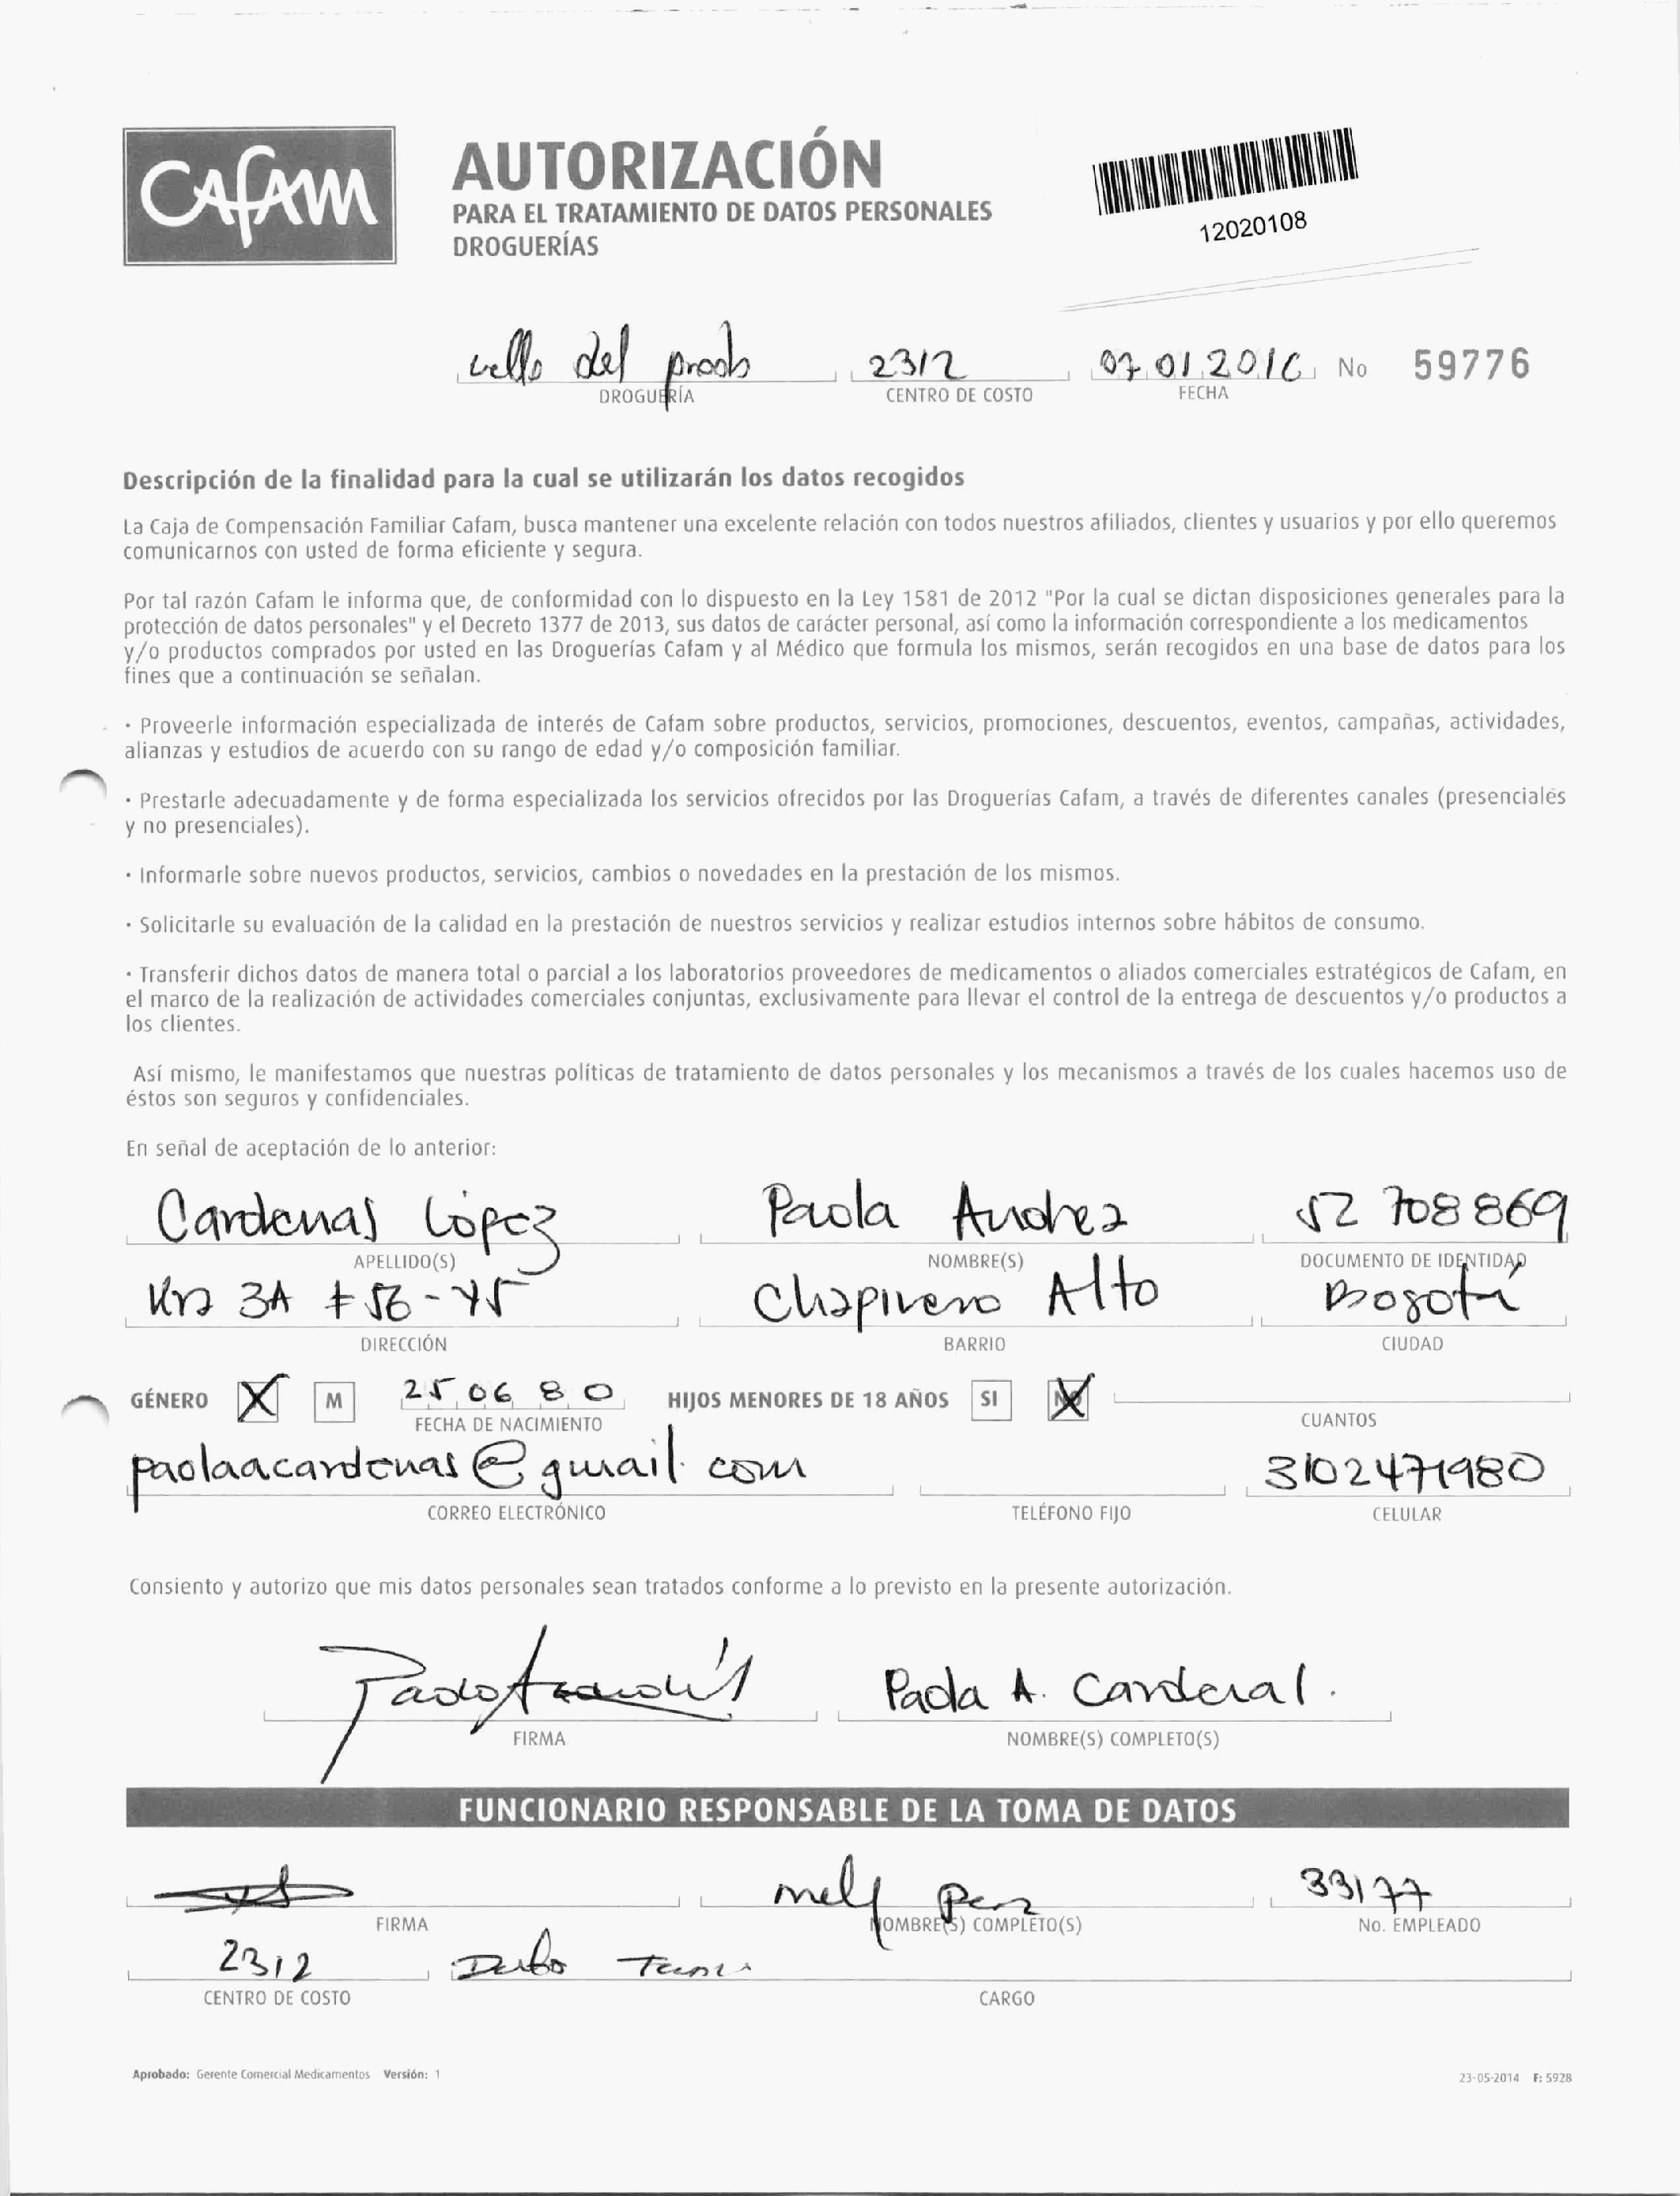 CAFAM
AUTORIZACIÓN
PARA EL TRATAMIENTO DE DATOS PERSONALES
DROGUERÍAS
12020108
del 2312 07 01 2016 No 59776
DROGUERÍA CENTRO DE COSTO FECHA
Descripción de la finalidad para la cual se utilizarán los datos recogidos
La Caja de Compensación Familiar Cafam, busca mantener una excelente relación con todos nuestros afiliados, clientes y usuarios y por ello queremos
comunicarnos con usted de forma eficiente y segura.
Por tal razón Cafam le informa que, de conformidad con lo dispuesto en la Ley 1581 de 2012 "Por la cual se dictan disposiciones generales para la
protección de datos personales" y el Decreto 1377 de 2013, sus datos de carácter personal, así como la información correspondiente a los medicamentos
y/o productos comprados por usted en las Droguerías Cafam y al Médico que formula los mismos, serán recogidos en una base de datos para los
fines que a continuación se señalan.
· Proveerle información especializada de interés de Cafam sobre productos, servicios, promociones, descuentos, eventos, campañas, actividades,
alianzas y estudios de acuerdo con su rango de edad y/o composición familiar.
· Prestarle adecuadamente y de forma especializada los servicios ofrecidos por las Droguerías Cafam, a través de diferentes canales (presenciales
y no presenciales).
· Informarle sobre nuevos productos, servicios, cambios o novedades en la prestación de los mismos.
· Solicitarle su evaluación de la calidad en la prestación de nuestros servicios y realizar estudios internos sobre hábitos de consumo.
· Transferir dichos datos de manera total o parcial a los laboratorios proveedores de medicamentos o aliados comerciales estratégicos de Cafam, en
el marco de la realización de actividades comerciales conjuntas, exclusivamente para llevar el control de la entrega de descuentos y/o productos a
los clientes.
Así mismo, le manifestamos que nuestras políticas de tratamiento de datos personales y los mecanismos a través de los cuales hacemos uso de
éstos son seguros y confidenciales.
En señal de aceptación de lo anterior:
Cardenas López Paola Andrea 52 708869
APELLIDO(S) NOMBRE(S) DOCUMENTO DE IDENTIDAD
Kra 3A # 56-45 Chapinero Alto Bogotá
DIRECCIÓN BARRIO CIUDAD
GÉNERO X M 25 06 80 HIJOS MENORES DE 18 AÑOS SI NO X
FECHA DE NACIMIENTO CUANTOS
paolaacardenas@gmail.com 3102471980
CORREO ELECTRÓNICO TELÉFONO FIJO CELULAR
Consiento y autorizo que mis datos personales sean tratados conforme a lo previsto en la presente autorización.
Paola A. Cardenas.
FIRMA NOMBRE(S) COMPLETO(S)
FUNCIONARIO RESPONSABLE DE LA TOMA DE DATOS
33177
FIRMA NOMBRE(S) COMPLETO(S) No. EMPLEADO
2312
CENTRO DE COSTO CARGO
Aprobado: Gerente Comercial Medicamentos Versión: 1 23-05-2014 F: 5928